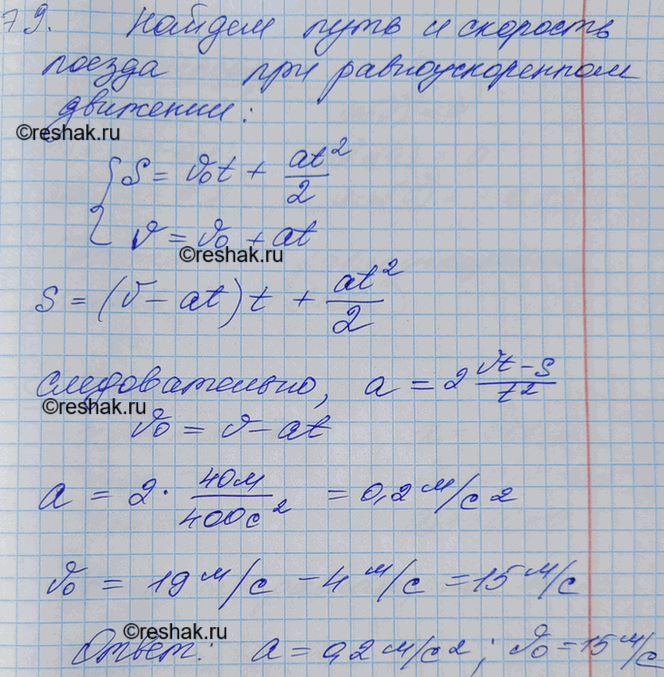 79. Найдем путь и скорость
поезда при равноускоренном
движении:
©reshak.ru
{ S = v₀t + at²/2
v = v₀ + at
©reshak.ru
S = (v - at)t + at²/2
следовательно, a = 2 (vt - s)/t²
©reshak.ru
v₀ = v - at
a = 2 · 40м/400с² = 0,2 м/с²
v₀ = 19 м/с - 4 м/с = 15 м/с
©reshak.ru
Ответ: a = 0,2 м/с²; v₀ = 15 м/с